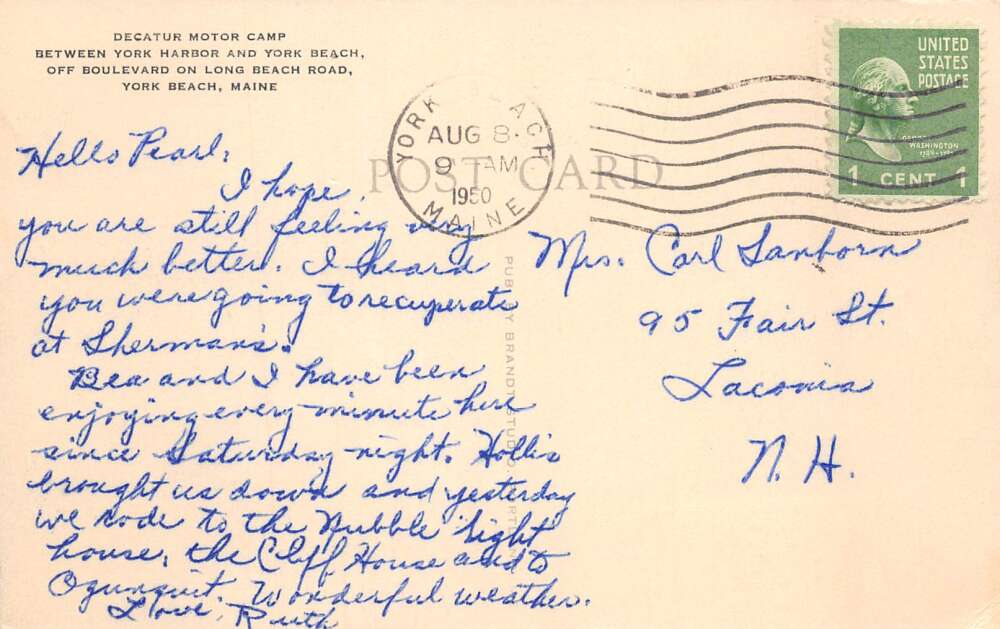 DECATUR MOTOR CAMP
BETWEEN YORK HARBOR AND YORK BEACH,
OFF BOULEVARD ON LONG BEACH ROAD,
YORK BEACH, MAINE
YORK BEACH
AUG 8
9 AM
1950
MAINE
UNITED
STATES
POSTAGE
GEORGE
WASHINGTON
1 CENT 1
POST CARD
Hello Pearl,
I hope
you are still feeling very
much better. I heard
you were going to recuperate
at Sherman's.
Bea and I have been
enjoying every minute here
since Saturday night. Hollis
brought us down and yesterday
we rode to the Nubble Light
house, the Cliff House and to
Ogunquit. Wonderful weather.
Love, Ruth
PUB. BY BRANDT STUDIO
Mrs. Carl Sanborn
95 Fair St.
Laconia
N. H.